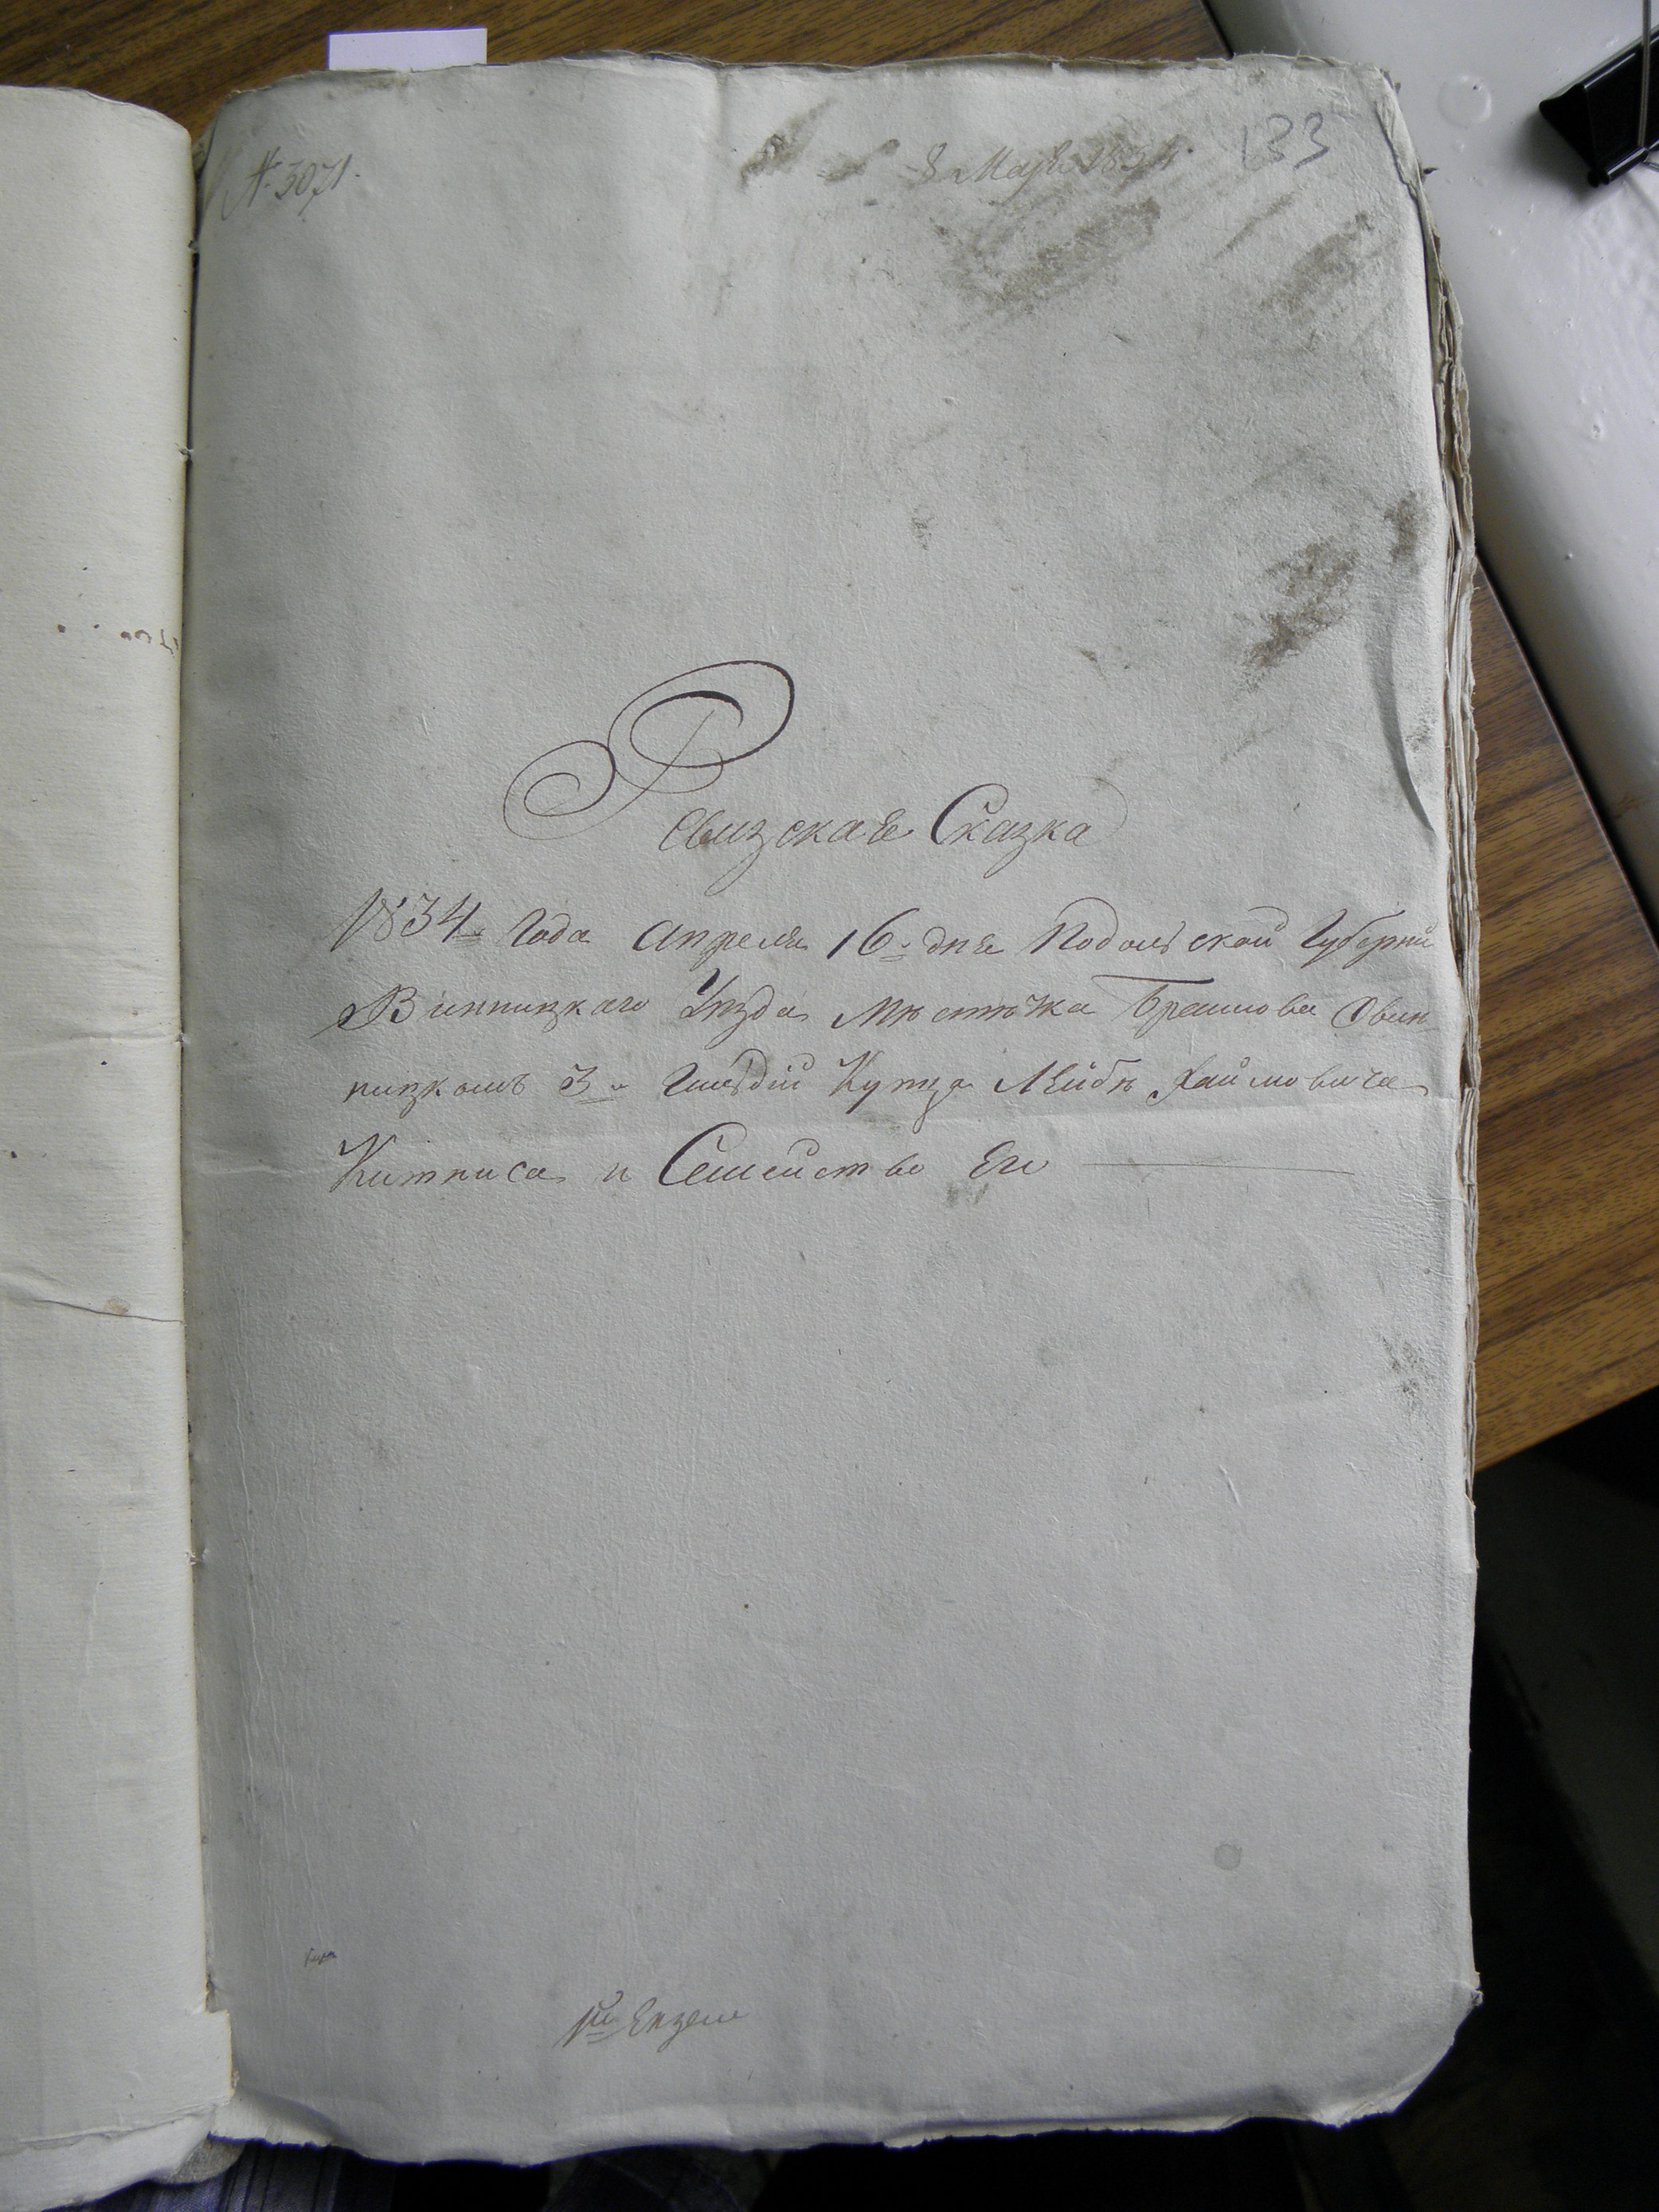 № 3071.
8 Маія 1834.
133
Ревизская Сказка
1834. года апреля 16. дня Подольской Губерніи
Винницкаго Уѣзда Мѣстѣчка Браилова Овин-
ницкомъ 3й гильдіи Купца Лейбѣ Хаимовича
Китниса и Семейство Его